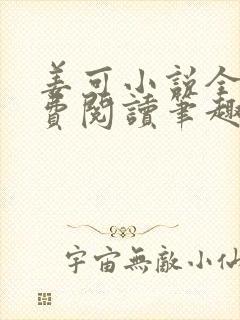 姜可小说全
费閱讀筆趣
宇宙無敵小仙